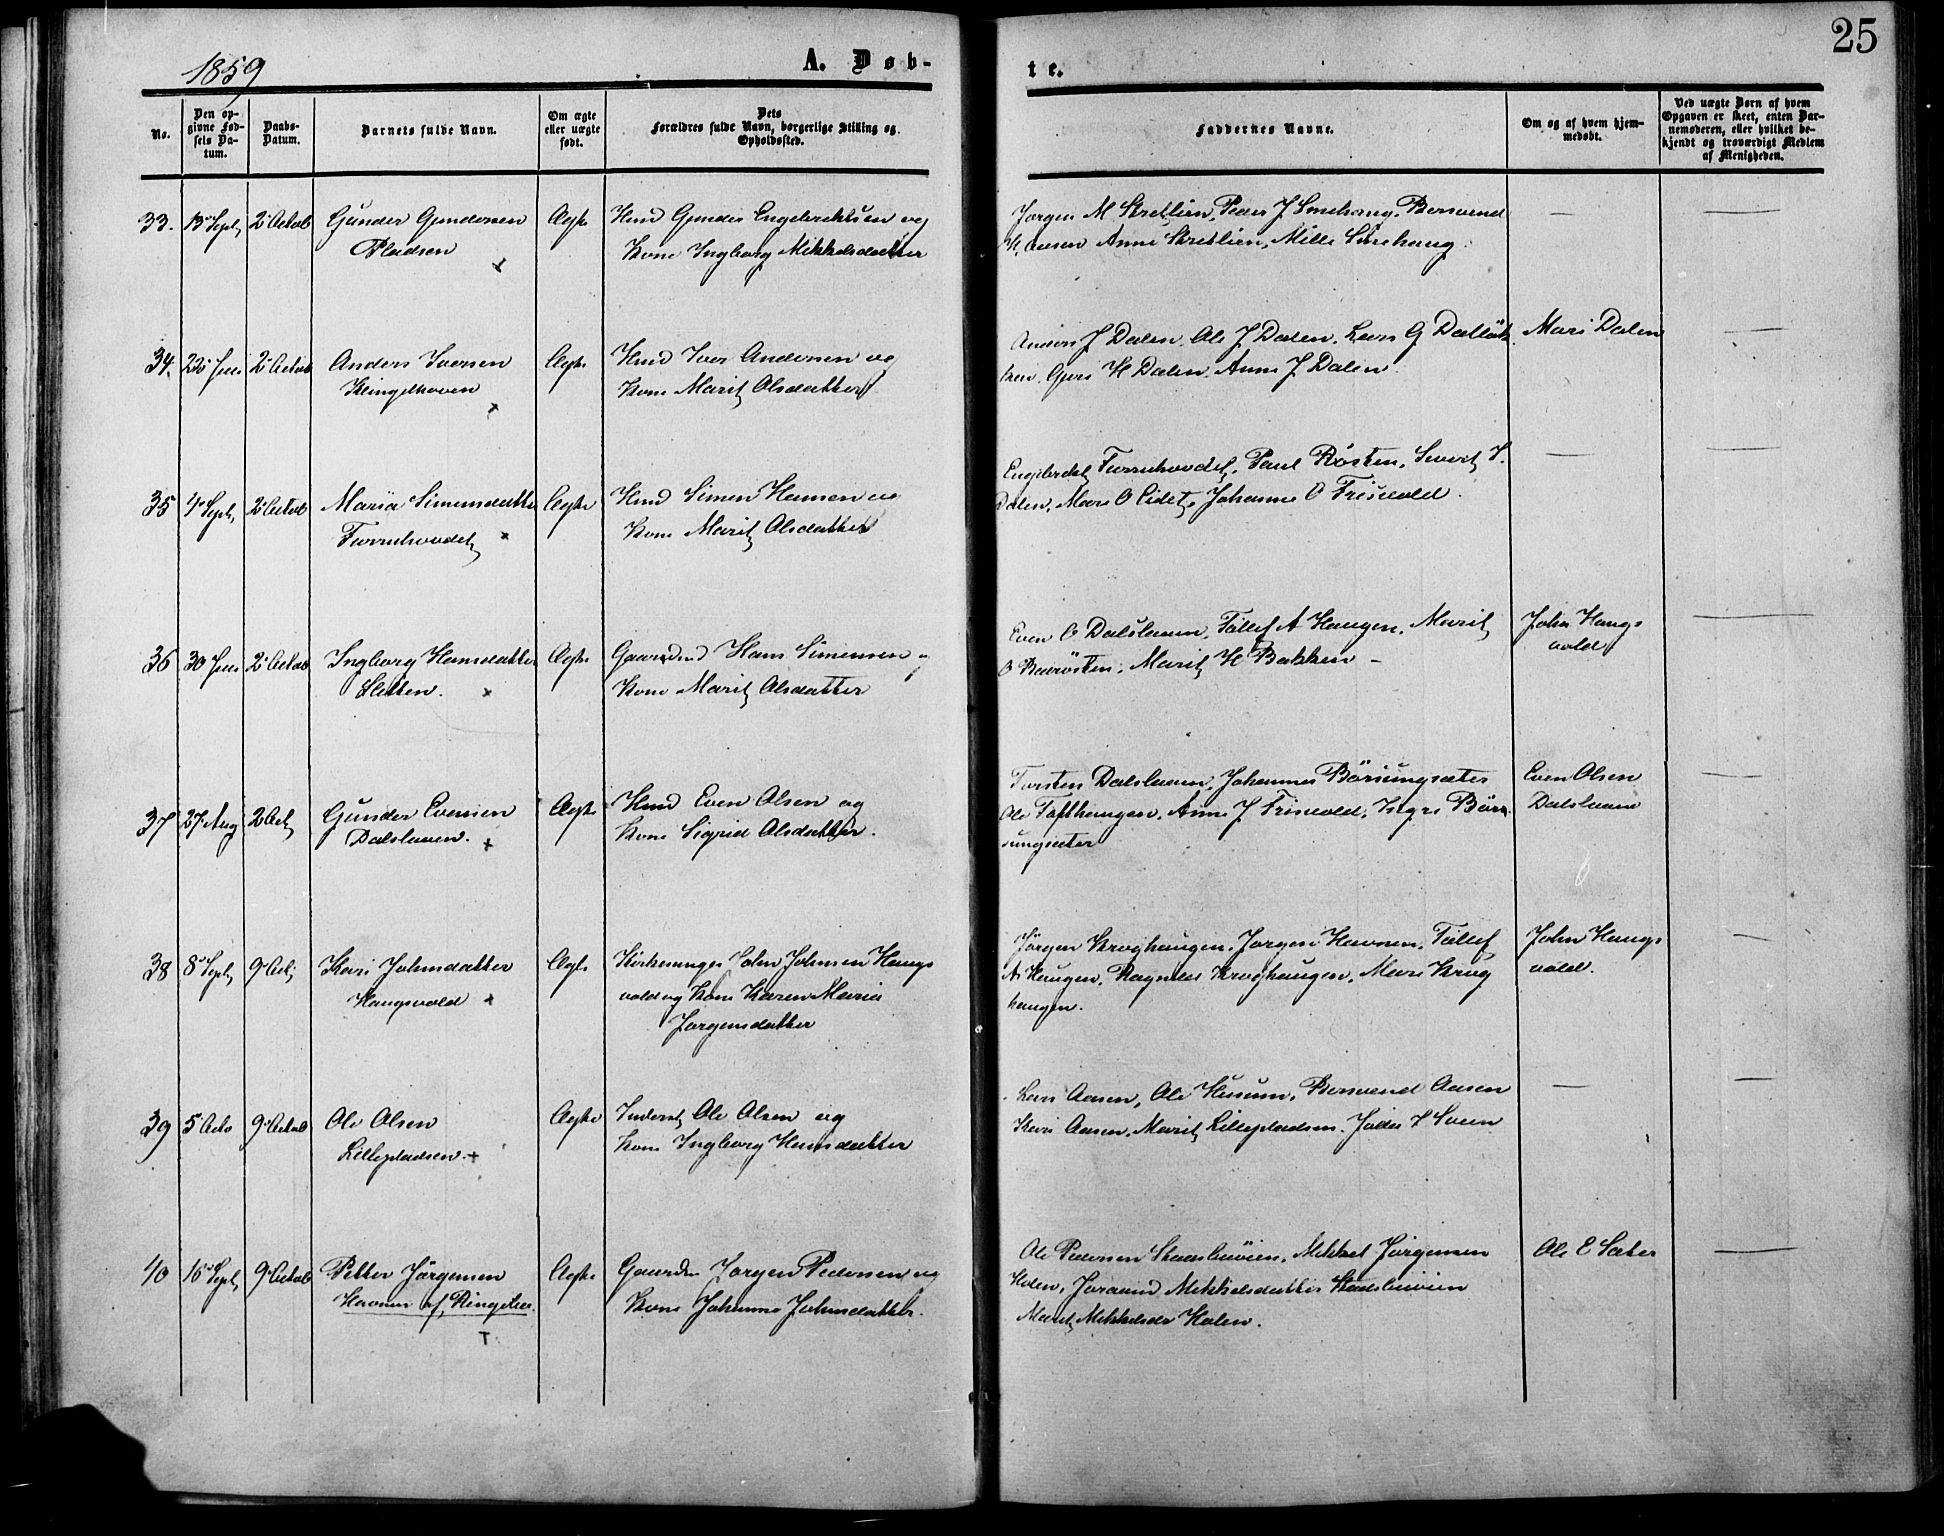 1859
A. Døb-
te.
25
No.
Den op-
givne Fød-
sels Da-
tum.
Daabs-
Datum.
Barnets fulde Navn.
Om ægte
eller uægte
født.
Dets
Forældres fulde Navn, borgerlige Stilling og
Opholdssted.
Faddernes Navne.
Om og af hvem hjem-
medøbt.
Ved uægte Børn af hvem
Opgaven er skeet, enten Bar-
nemoderen, eller hvilket be-
kjendt og troværdigt Medlem
af Menigheden.
33. 13 Sept, 2 Octob Gunder Gundersen Ægte Hmd Gunder Engebrektsen og
Pladsen Kone Ingborg Mikkelsdatter
Jørgen M Stretlien, Peder J Smehaug, Bersvend
H, Aasen Anne Stretlien, Mille Smehaug.
34. 22 Juli 2 Octob Anders Iversen Ægte Hmd Iver Andersen og
Klingelhoven Kone Marit Olsdatter
Anders J Dalen, Ole J Dalen, Lars G Dalløk
ken, Guri H Dalen, Anne J Dalen. Mari Dalen
35 4 Sept, 2 Octob Maria Simensdatter Ægte Hmd Simen Hansen og
Furruhovdet Kone Marit Olsdatter
Engebret Furruhovdet, Paul Røsten, Sivert I.
Dalen, Mari O Eidet, Johanne O Frisvold.
36 30 Juli 2 Octob Ingborg Hansdatter Ægte Gaardmd Hans Simensen og
Sletten. Kone Marit Olsdatter
Even O Dalslaaen, Tollef A Haugen, Marit
O Barøsten, Marit H Bakken - John Haugs
vold
37 27 Aug 2 Oct, Gunder Evensen Ægte Hmd Even Olsen og
Dalslaaen. Kone Sigrid Olsdatter.
Torsten Dalslaaen, Johannes Børsungsæter
Ole Tofthaugen, Anne J Frisvold, Ingri Børr
sungsæter Even Olsen
Dalslaaen
38 8 Sept, 9 Oct, Kari Johnsdatter Ægte Kirkesanger John Johnsen Haugs
Haugsvold vold og Kone Karen Maria
Jørgensdatter
Jørgen Kroghaugen, Jørgen Havnen, Tollef
A Haugen, Ragnild Kroghaugen, Mari Krog
haugen. John Haugs
vold.
39 5 Octo 9 Octob Ole Olsen Ægte Inderst, Ole Olsen og
Lillepladsen. Kone Ingborg Hansdatter
Lars Aasen, Ole Husum, Bersvend Aasen
Kari Aasen, Marit Lillepladsen,
40 16 Sept, 9 Octob Petter Jørgensen Ægte Gaardm Jørgen Pedersen og
Havnen af, Ringebu. Kone Johanne Johnsdatter.
Ole Pedersen Stadsbuøien, Mikkel Jørgensen
Holen, Joraand Mikkelsdatter Stadsbuøien
Marit Mikkelsdr Holen. Ole E Sæter